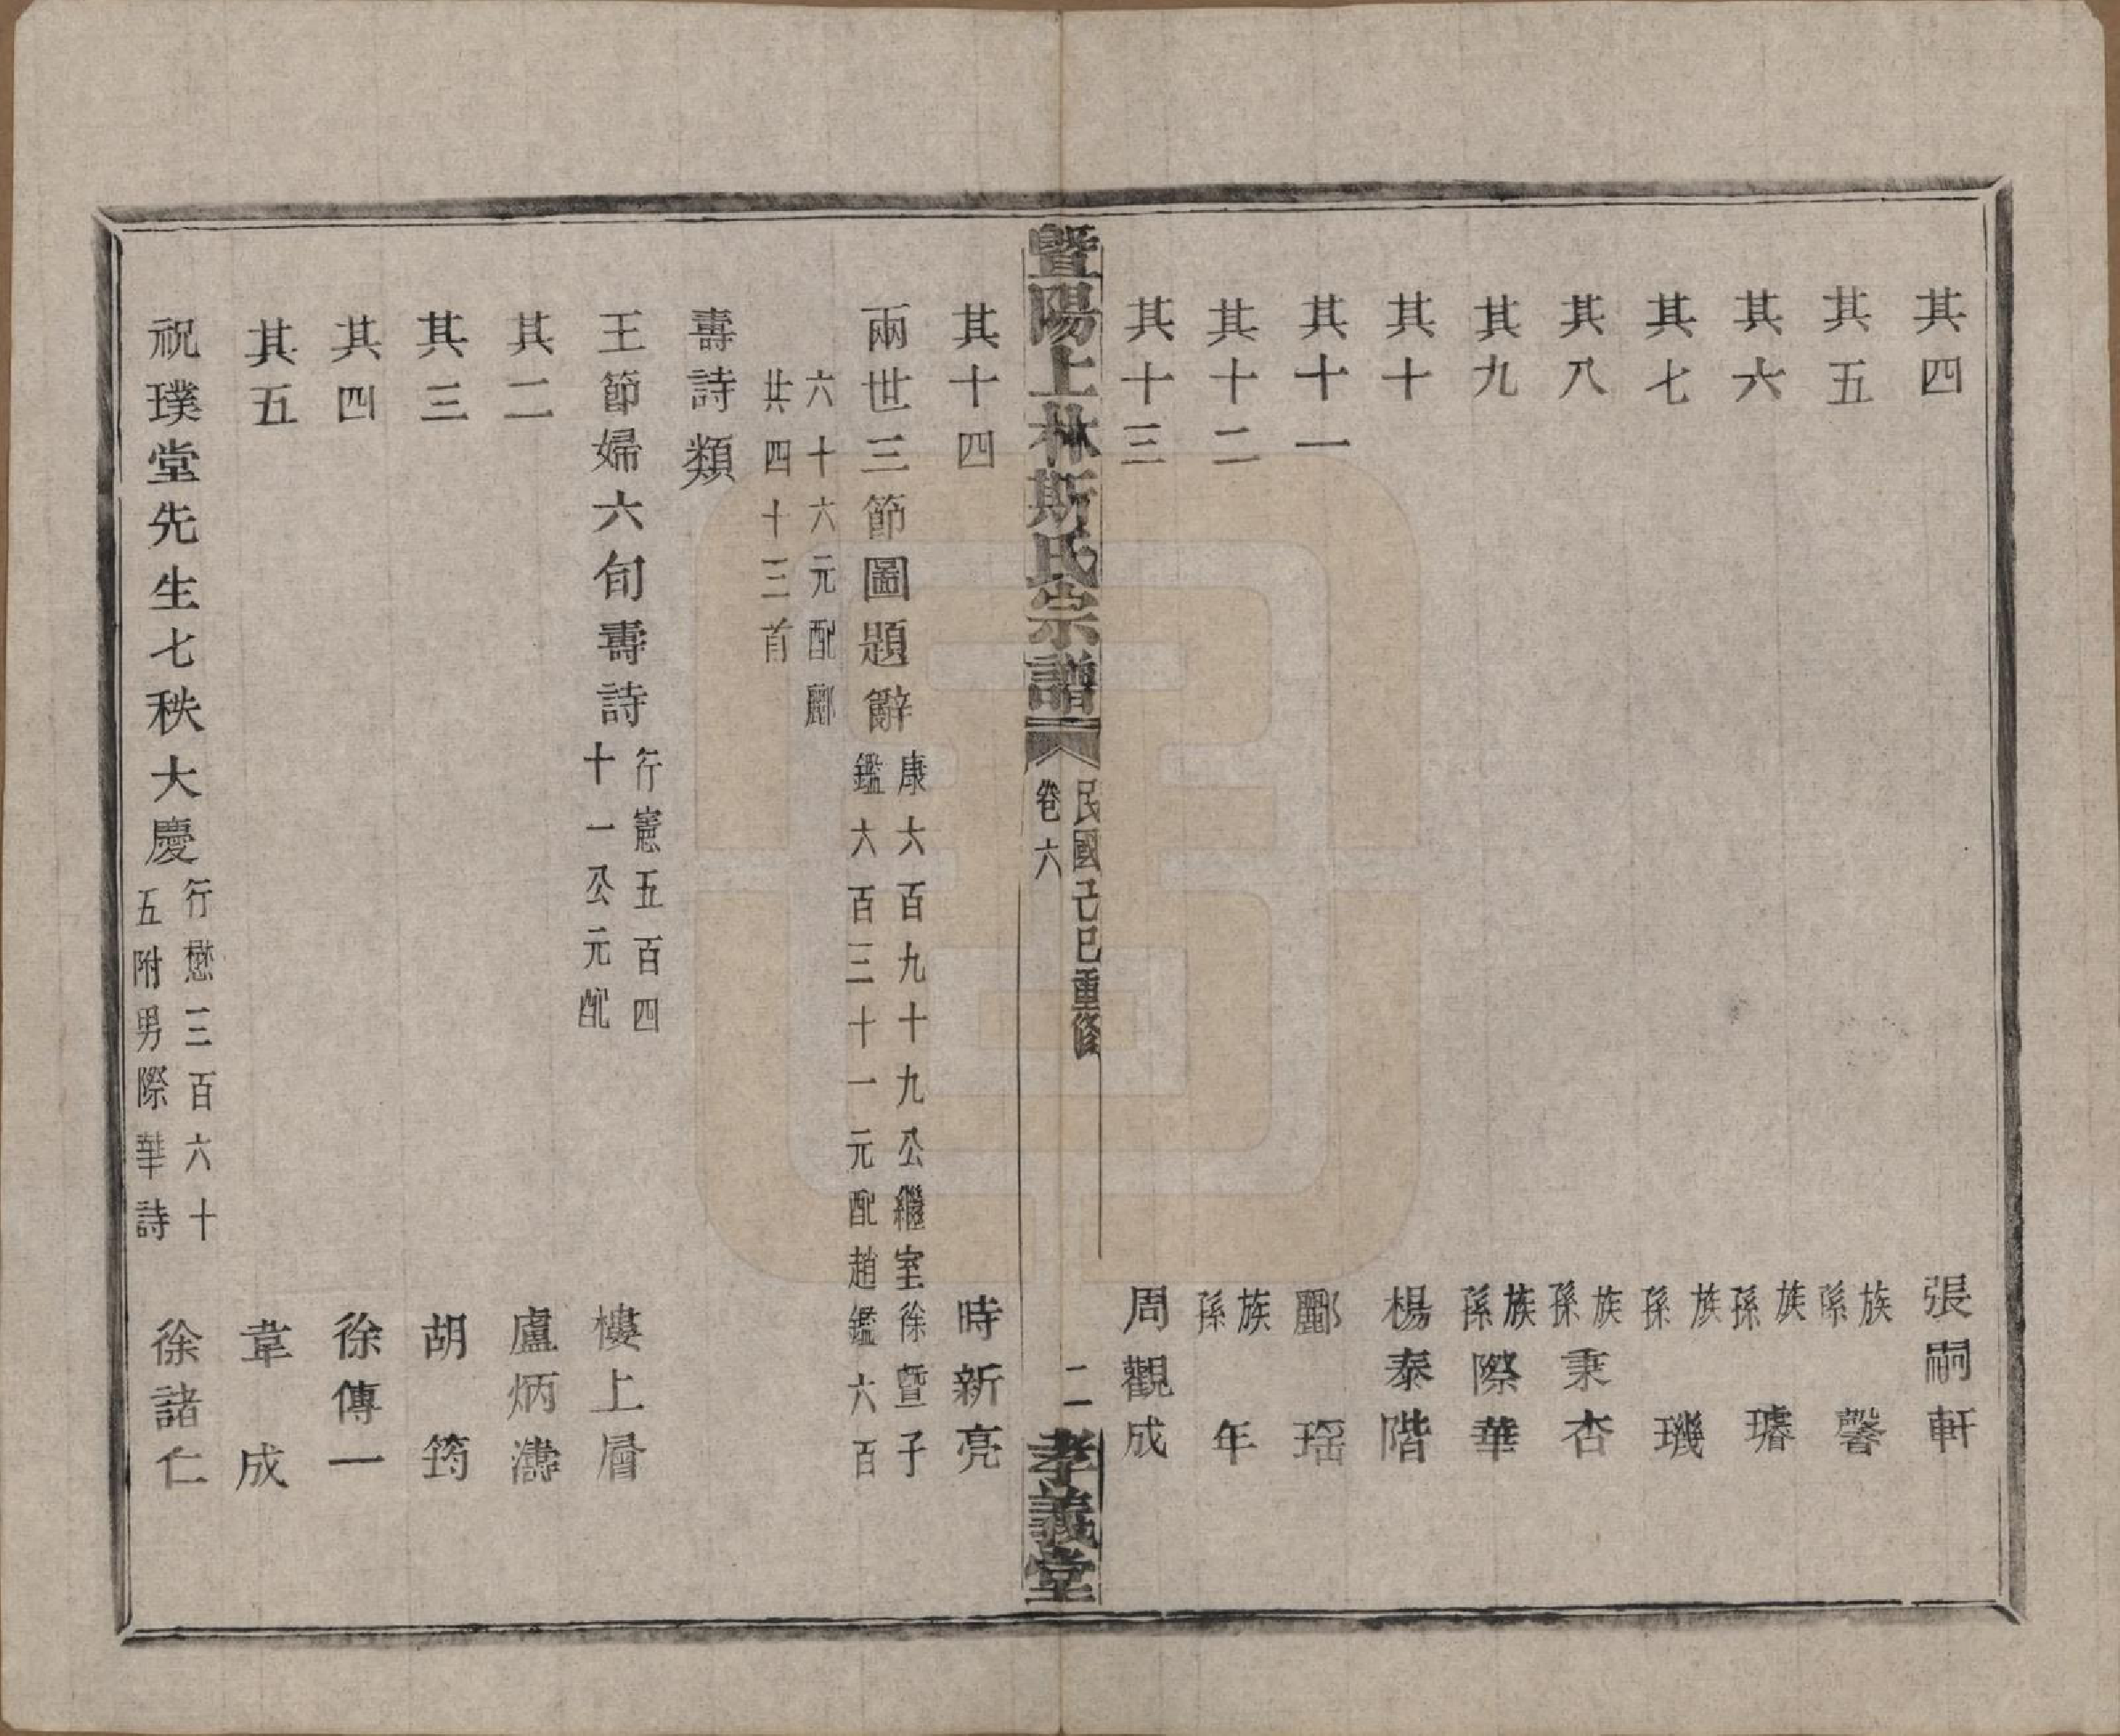 其四　張嗣軒
其五　族孫馨
其六　族孫璿
其七　族孫璣
其八　族孫秉杏
其九　族孫際華
其十　楊泰階
其十一　酈瑶
其十二　族孫年
其十三　周觀成
暨陽上林斯氏宗譜　民國己巳重修　卷六　二　孝義堂
其十四　時新亮
兩世三節圖題辭　康六百九十九公繼室徐暨子
鑑六百三十一元配趙鑑六百
六十六元配酈
共四十三首
壽詩類
王節婦六旬壽詩　行憲五百四
十一公元配　樓上層
其二　盧炳濤
其三　胡筠
其四　徐傳一
其五　韋成
祝璞堂先生七秩大慶　行懋三百六十
五附男際華詩　徐諸仁